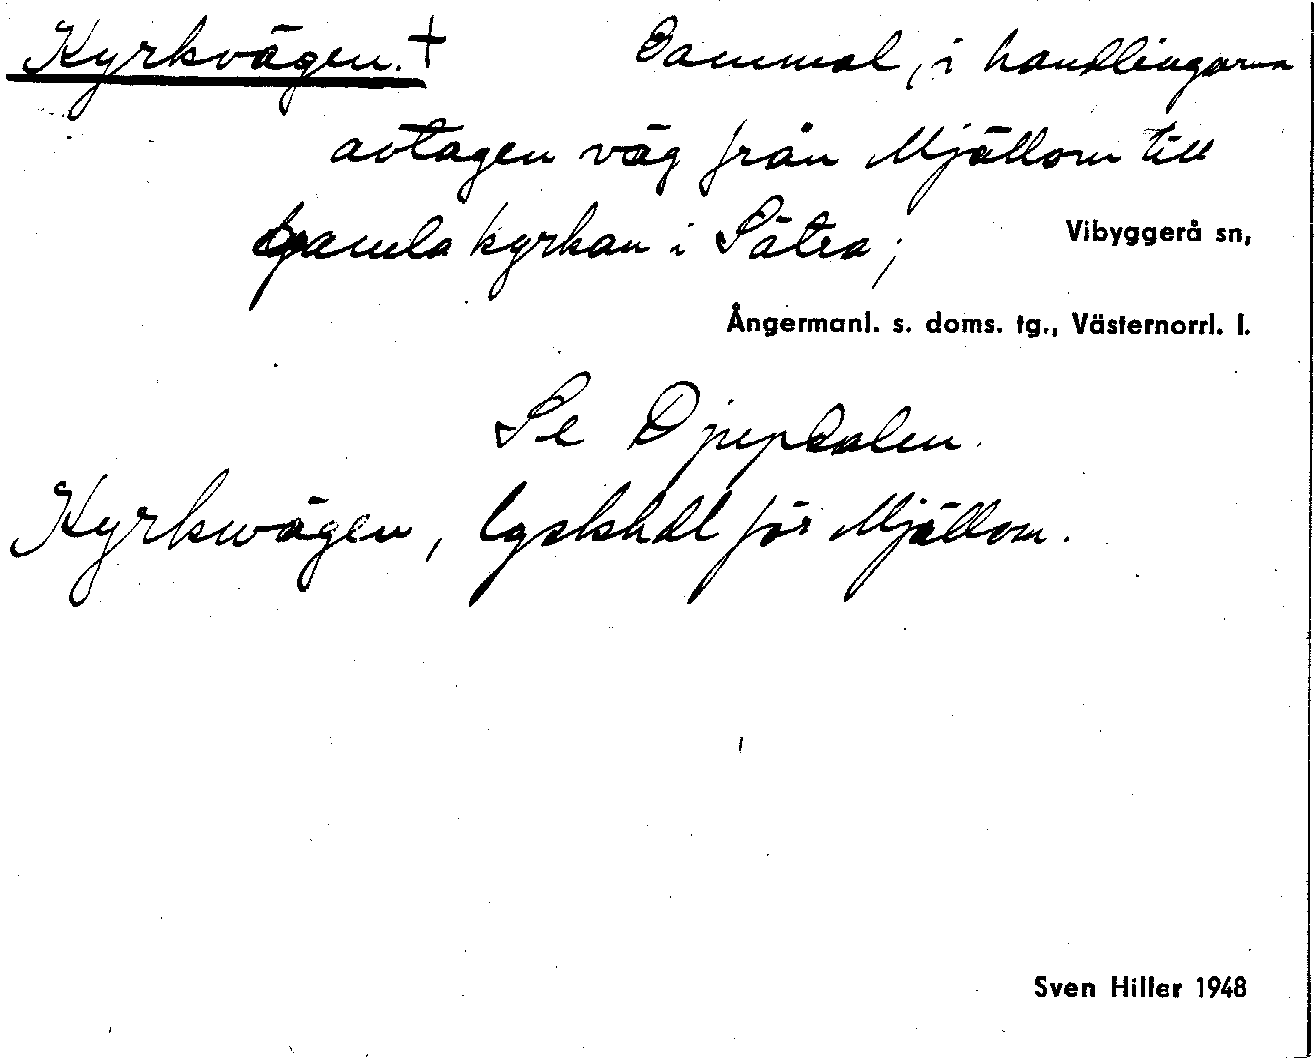 Kyrkvägen. + Gammal, i handlingarna
avtagen väg från Mjällom till
gamla kyrkan i Sätra;
Vibyggerå sn,
Ångermanl. s. doms. tg., Västernorrl. l.
Se Djupdalen.
Kyrkwägen, för Mjällom.
Sven Hiller 1948